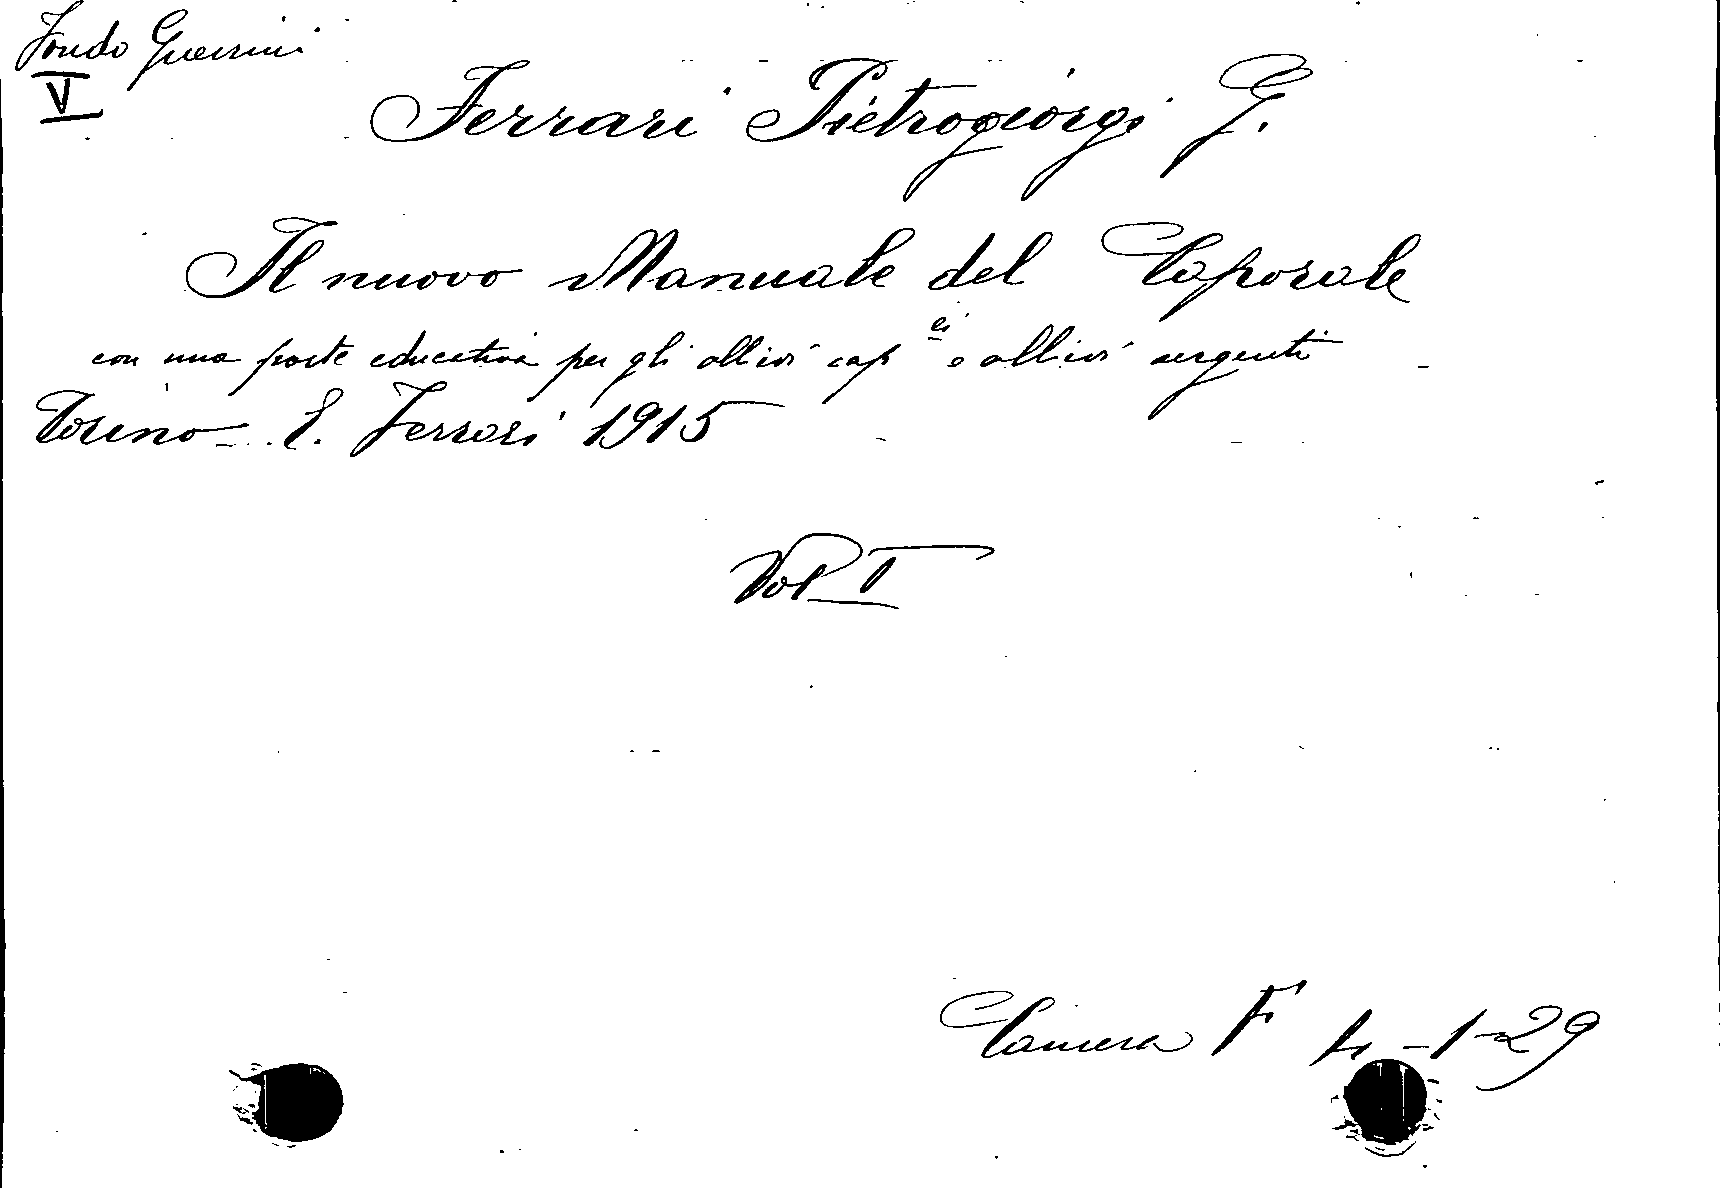 Fondo Guerrini
V
Ferrari Pietrogiorgi G.
Il nuovo Manuale del Caporale
con una parte educativa per gli allievi cap.li e allievi sergenti
Torino - E. Ferrari 1915
Vol I
Camera F 4 - 1 - 29